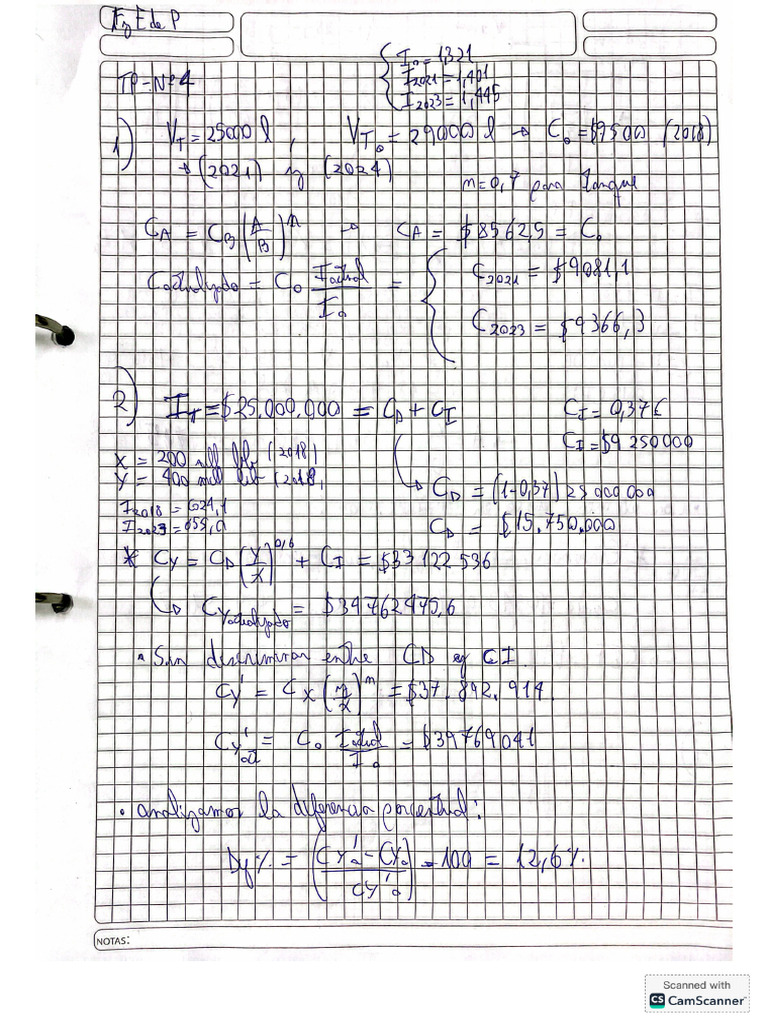 F y E de P
TP-Nº4
{I₀ = 1,321
I2021 = 1,401
I2023 = 1,445
1) V_T = 25000 l, V_T₀ = 29000 l → C₀ = $9500 (2018)
→ (2021) y (2024)
n=0,7 para tanque
C_A = C_B (A/B)^n → C_A = $8562,5 = C₀
Cactualizado = C₀ Iactual/I₀ = { C2021 = $9081,1
C2023 = $9366,3
2) I_T = $25.000.000 = C_D + C_I
C_I = 0,37
C_I = $9 250000
X = 200 mill (2018)
Y = 400 mill (2018)
→ C_D = (1-0,37) 25 000 000
I2018 = 624,1
I2023 = 655,0
C_D = $15.750.000
* C_Y = C_D (Y/X)^0,6 + C_I = $33 122 536
→ C_Y actualizado = $34762475,6
• Sin discriminar entre CD y CI
C_Y' = C_X (Y/X)^n = $37.892.914
C_Y'a = C₀ Iactual/I₀ = $39769041
• analizamos la diferencia porcentual:
Df% = (CY'a - CYa / CY'a) · 100 = 12,6%
NOTAS:
Scanned with
CS CamScanner